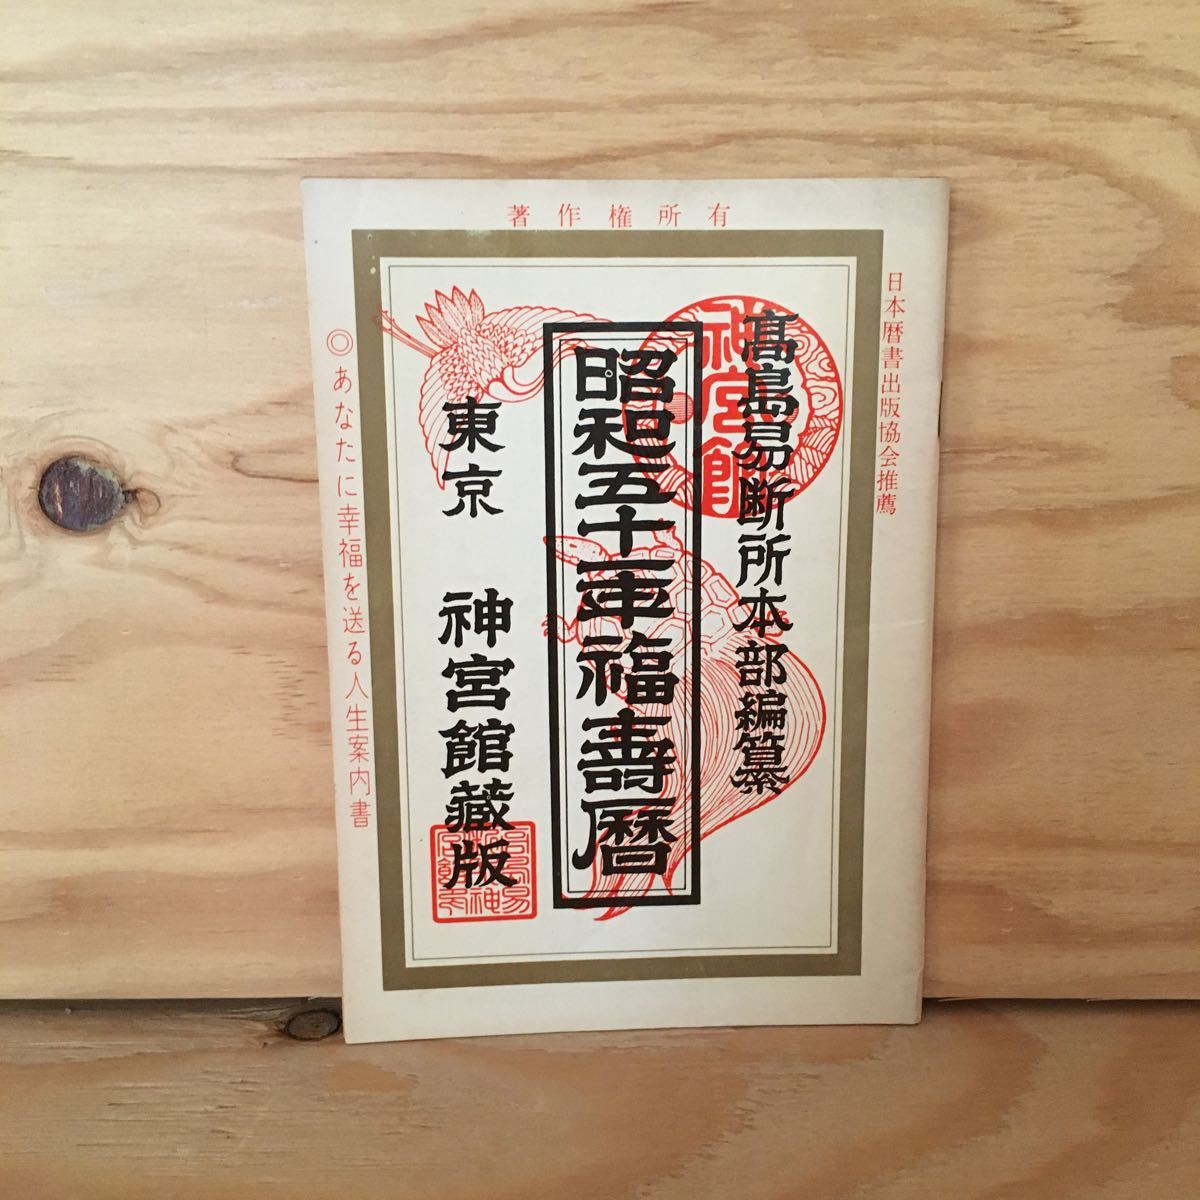 著作権所有
日本暦書出版協会推薦
髙島易断所本部編纂
神宮館
昭和五十一年福壽暦
東京 神宮館藏版
◎あなたに幸福を送る人生案内書